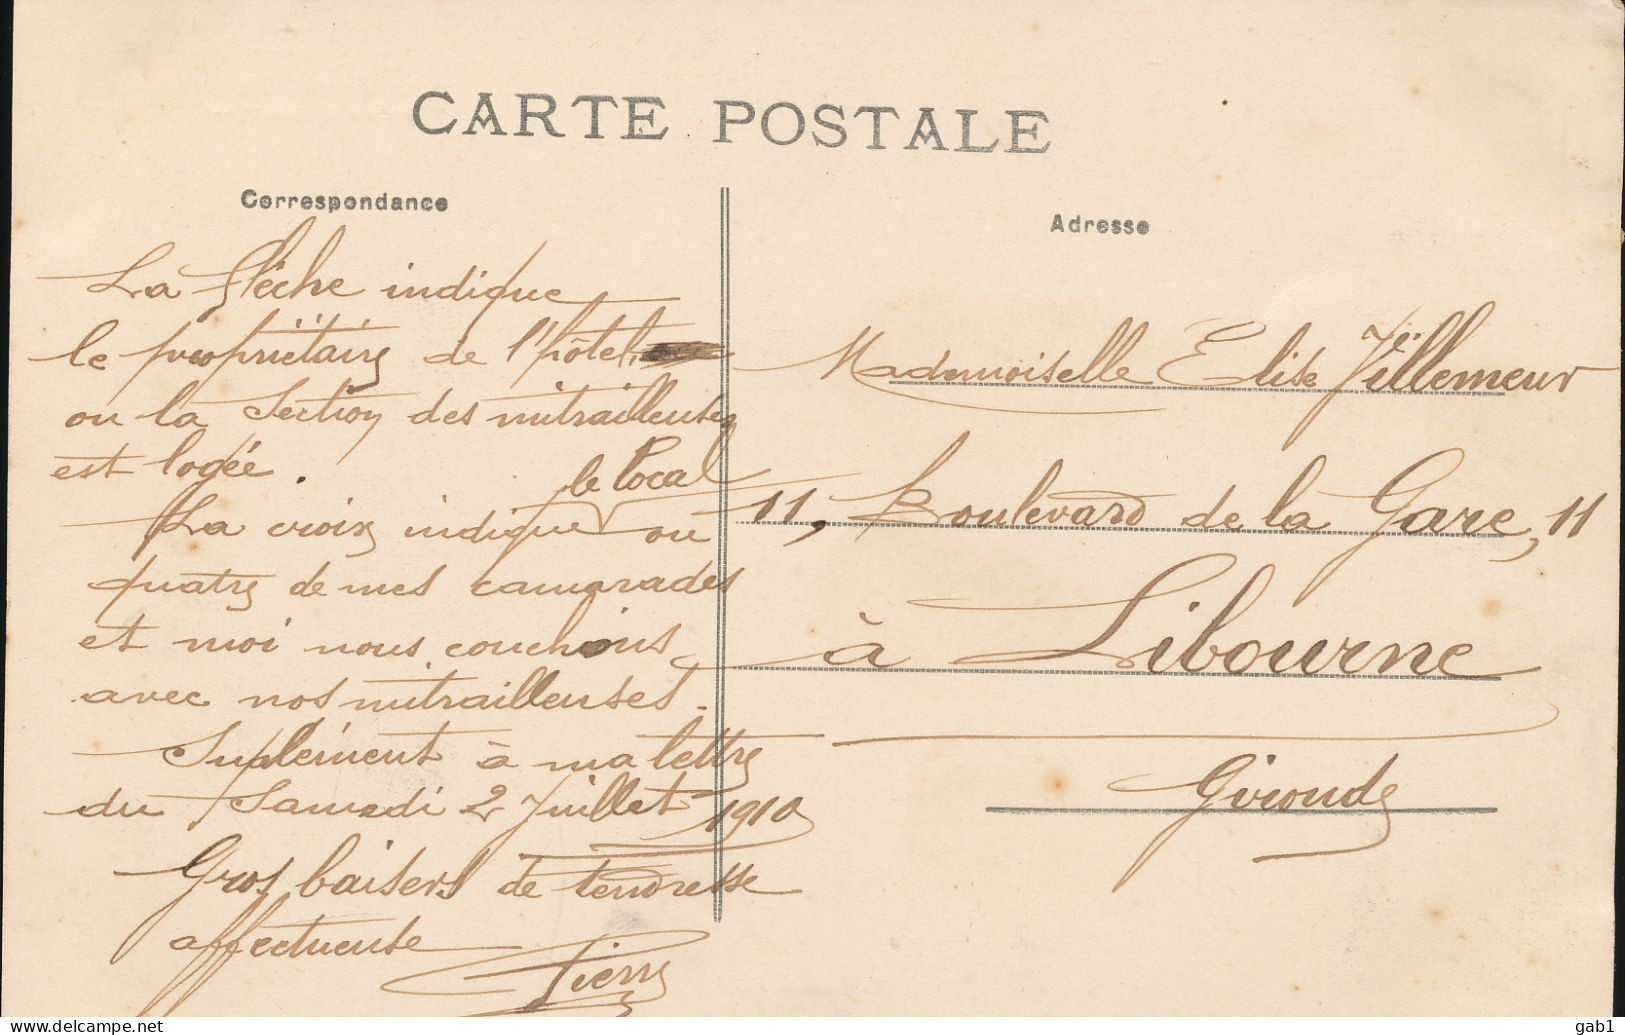 CARTE POSTALE
Correspondance
La flèche indique
le propriétaire de l'hôtel
ou la Section des mitrailleuses
est logée.
le local
La croix indique ou
quatre de mes camarades
et moi nous couchons
avec nos mitrailleuses.
Suplément à ma lettre
du Samedi 2 Juillet 1910
Gros baisers de tendresse
affectueuse
Pierre
Adresse
Mademoiselle Elise Villemeur
11, Boulevard de la Gare, 11
à Libourne
Gironde
www.delcampe.net
gab1